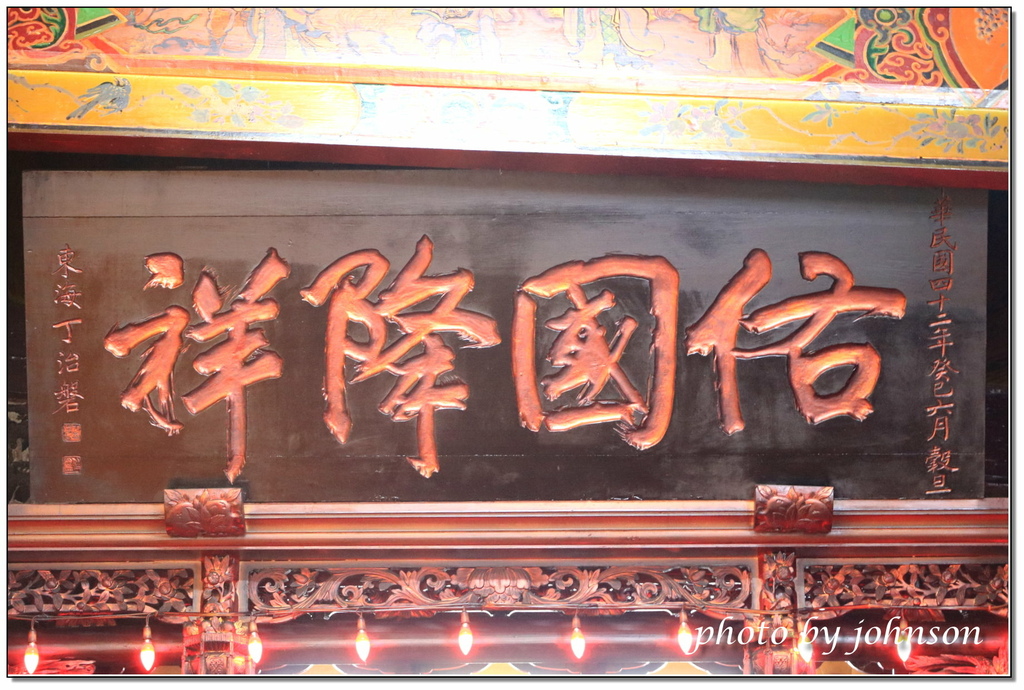 華民國四十二年癸巳六月穀旦
佑國隆祥
東海丁治磐
photo by johnson